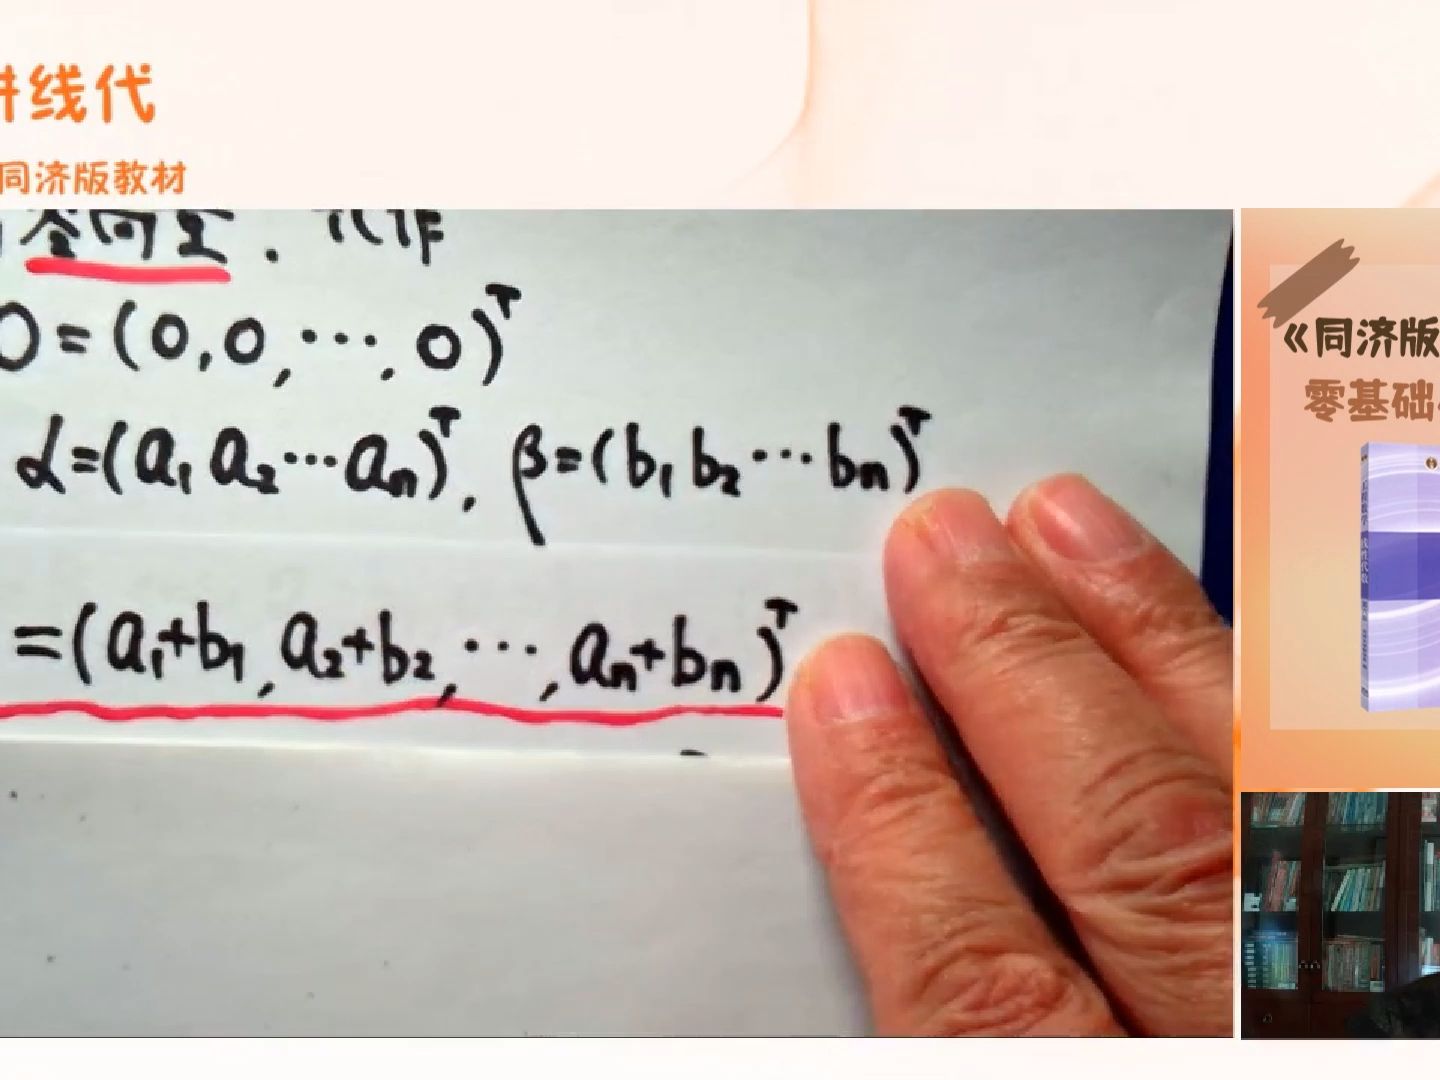 讲线代
同济版教材
零向量.记作
0=(0,0,…,0)ᵀ
α=(a₁ a₂…aₙ)ᵀ, β=(b₁ b₂…bₙ)ᵀ
=(a₁+b₁,a₂+b₂,…,aₙ+bₙ)ᵀ
《同济版
零基础
线性代数